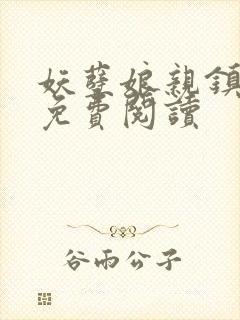 妖孽娘親鎮
免費閱讀
谷雨公子